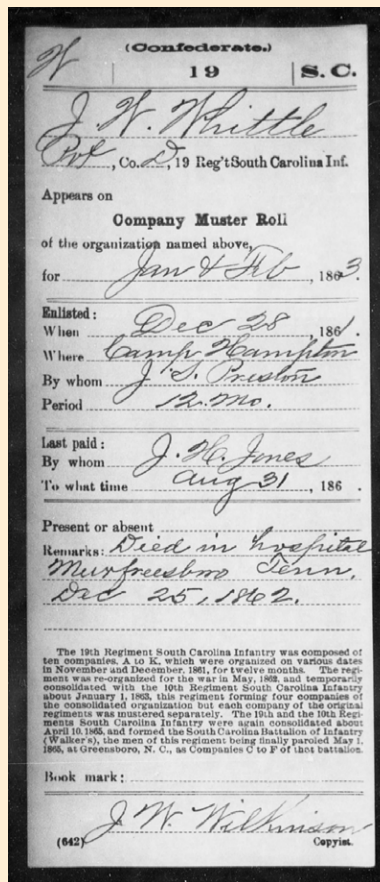 (Confederate.)
W | 19 | S. C.
J. W. Whittle
Pvt, Co. D, 19 Reg't South Carolina Inf.
Appears on
Company Muster Roll
of the organization named above,
for Jan & Feb, 1863.
Enlisted:
When Dec 28, 1861.
Where Camp Hampton
By whom J. S. Preston
Period 12. mo.
Last paid:
By whom J. H. Jones
To what time Aug 31, 186 .
Present or absent
Remarks: Died in hospital
Murfreesboro Tenn.
Dec 25, 1862.
The 19th Regiment South Carolina Infantry was composed of
ten companies, A to K, which were organized on various dates
in November and December, 1861, for twelve months. The regi-
ment was re-organized for the war in May, 1862, and temporarily
consolidated with the 10th Regiment South Carolina Infantry
about January 1, 1863, this regiment forming four companies of
the consolidated organization but each company of the original
regiments was mustered separately. The 19th and the 10th Regi-
ments South Carolina Infantry were again consolidated about
April 10, 1865, and formed the South Carolina Battalion of Infantry
(Walker's), the men of this regiment being finally paroled May 1,
1865, at Greensboro, N. C., as Companies C to F of that battalion.
Book mark:
J. W. Wilkinson
(642) Copyist.